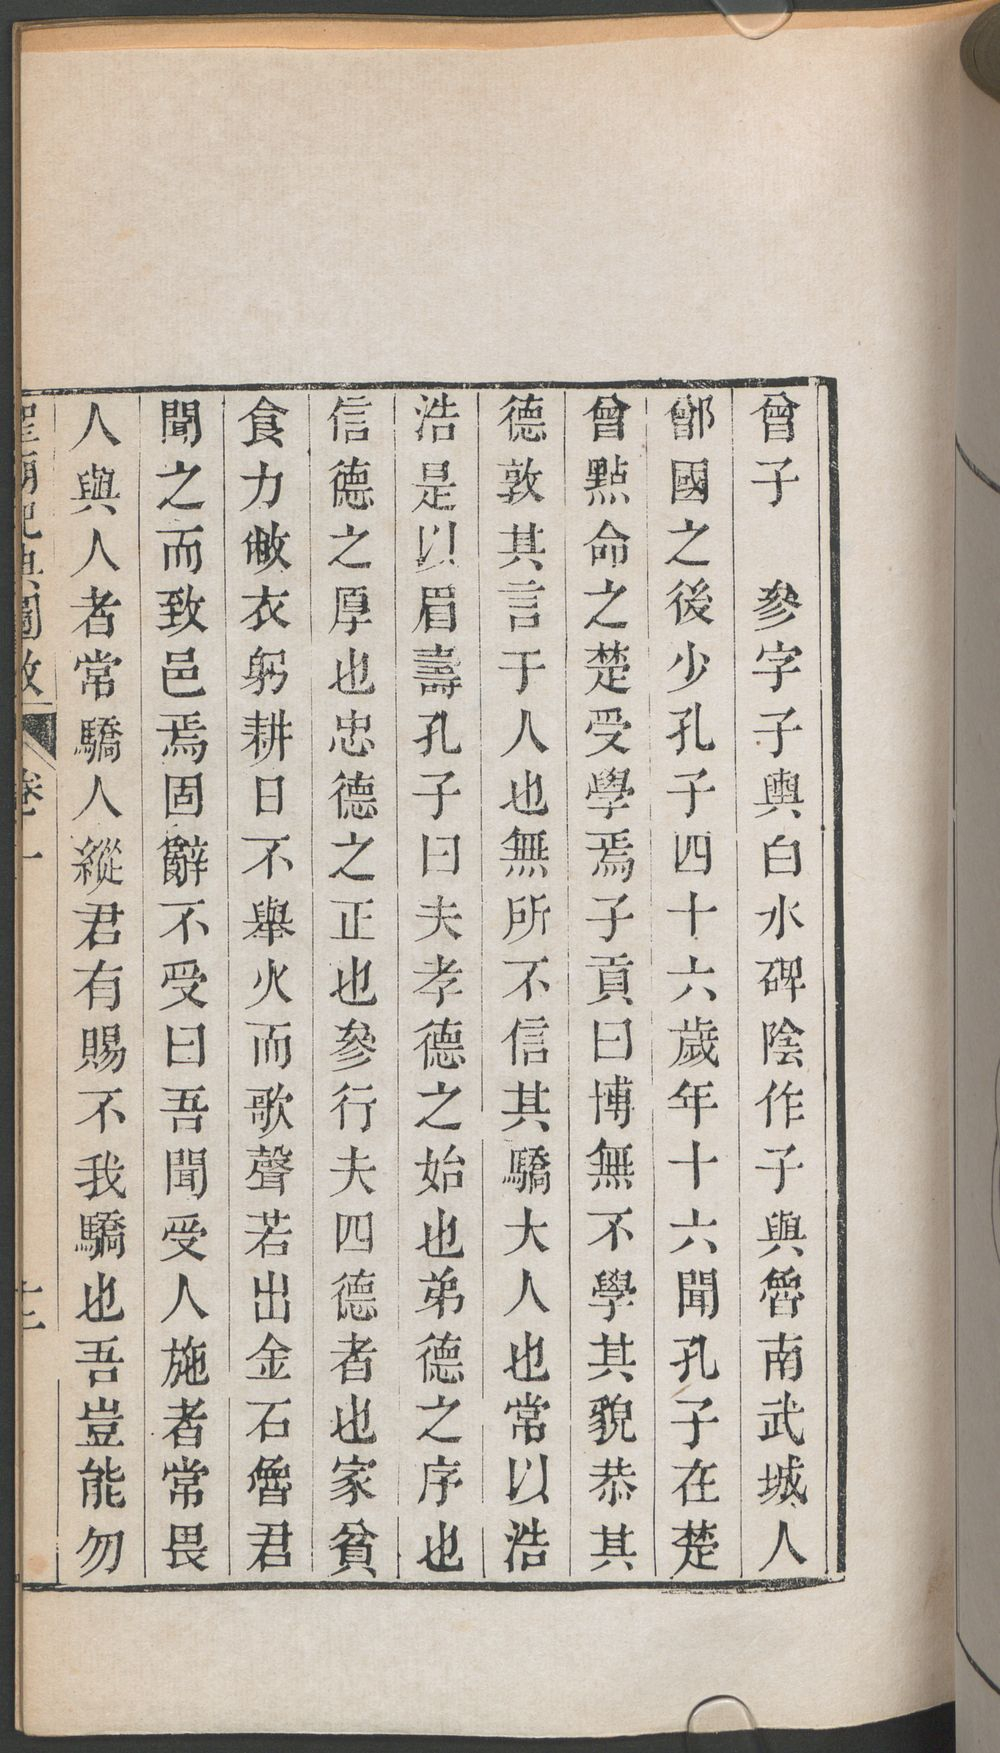 曾子　參字子輿白水碑陰作子與魯南武城人
鄫國之後少孔子四十六歲年十六聞孔子在楚
曾點命之楚受學焉子貢曰博無不學其貌恭其
德敦其言于人也無所不信其驕大人也常以浩
浩是以眉壽孔子曰夫孝德之始也弟德之序也
信德之厚也忠德之正也參行夫四德者也家貧
食力敝衣躬耕日不舉火而歌聲若出金石魯君
聞之而致邑焉固辭不受曰吾聞受人施者常畏
人與人者常驕人縱君有賜不我驕也吾豈能勿
聖廟祀典圖攷 卷一